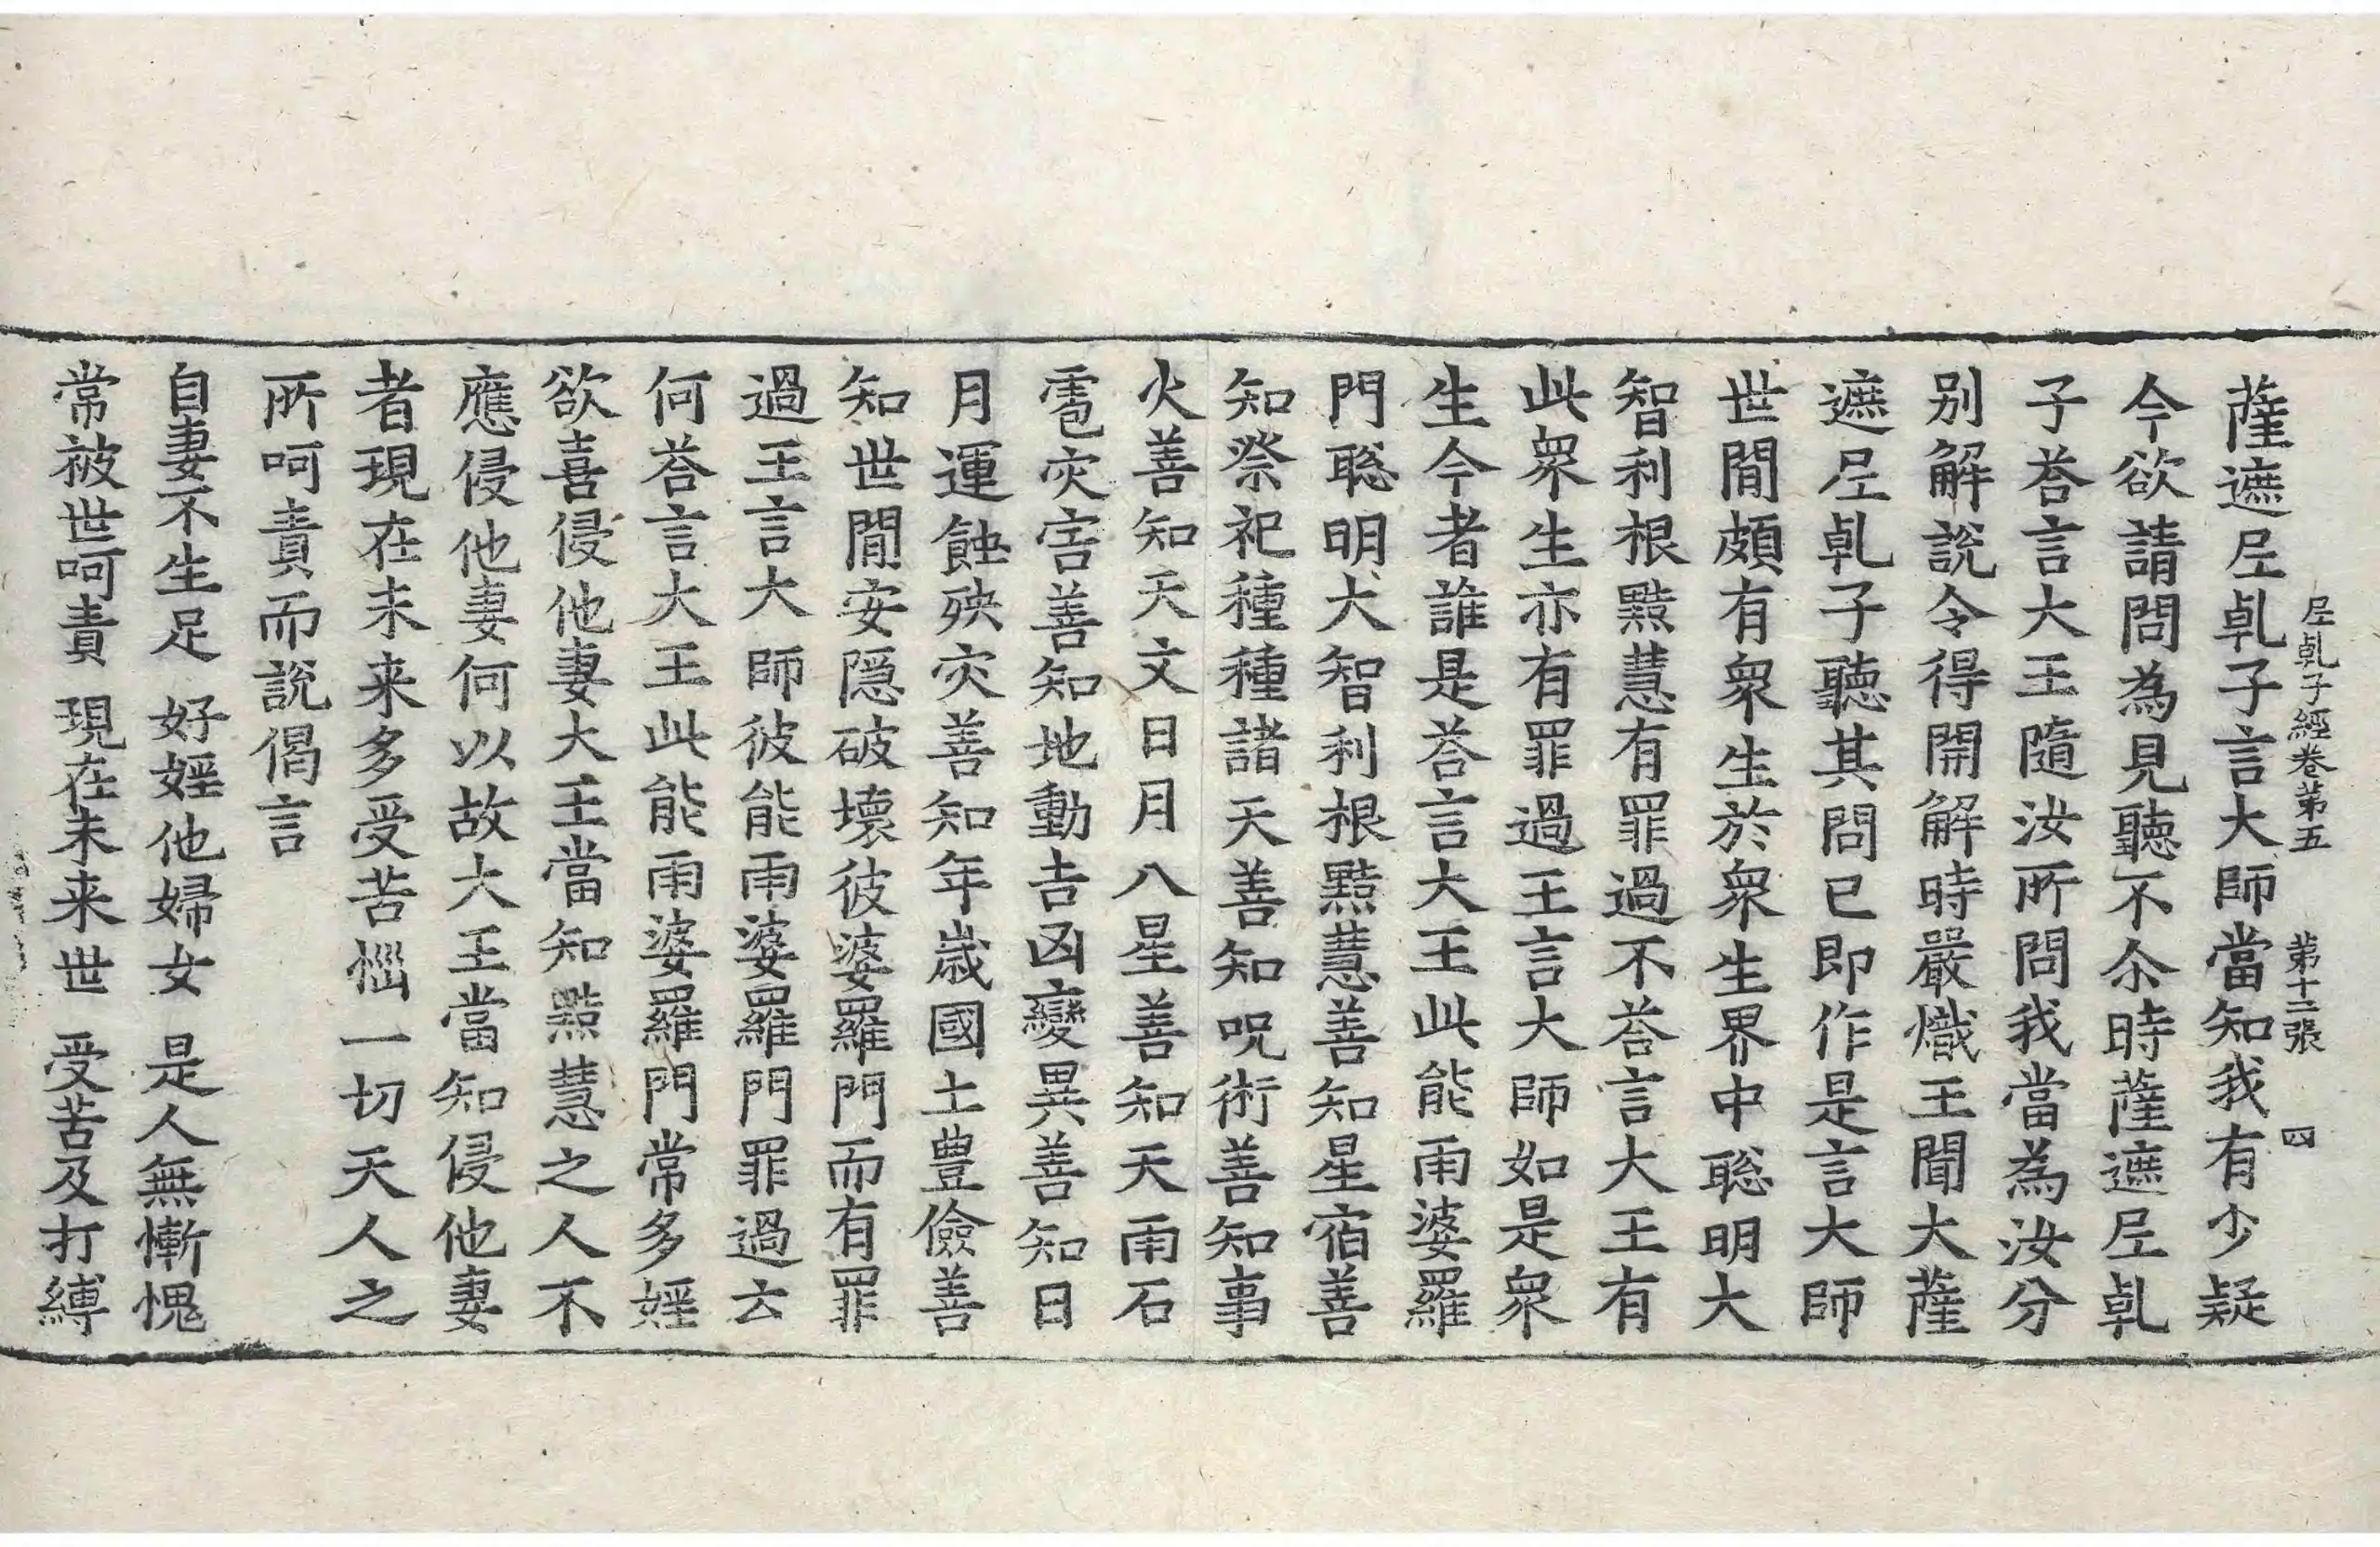 𡰱乹子經卷第五 第十二張 四
薩遮𡰱乹子言大師當知我有少疑
今欲請問為見聽不尒時薩遮𡰱乹
子荅言大王隨汝所問我當為汝分
别解說令得開解時嚴熾王聞大薩
遮𡰱乹子聽其問已即作是言大師
世間頗有衆生於衆生界中聡明大
智利根黠慧有罪過不荅言大王有
此衆生亦有罪過王言大師如是衆
生今者誰是荅言大王此能雨婆羅
門聡明大智利根黠慧善知星宿善
知祭祀種種諸天善知呪術善知事
火善知天文日月八星善知天雨石
雹灾害善知地動吉凶變異善知日
月運蝕殃灾善知年歲國土豊儉善
知世間安隠破壞彼婆羅門而有罪
過王言大師彼能雨婆羅門罪過云
何荅言大王此能雨婆羅門常多婬
欲喜侵他妻大王當知黠慧之人不
應侵他妻何以故大王當知侵他妻
者現在未来多受苦惱一切天人之
所呵責而說偈言
自妻不生足 好婬他婦女 是人無慚愧
常被世呵責 現在未来世 受苦及打縛